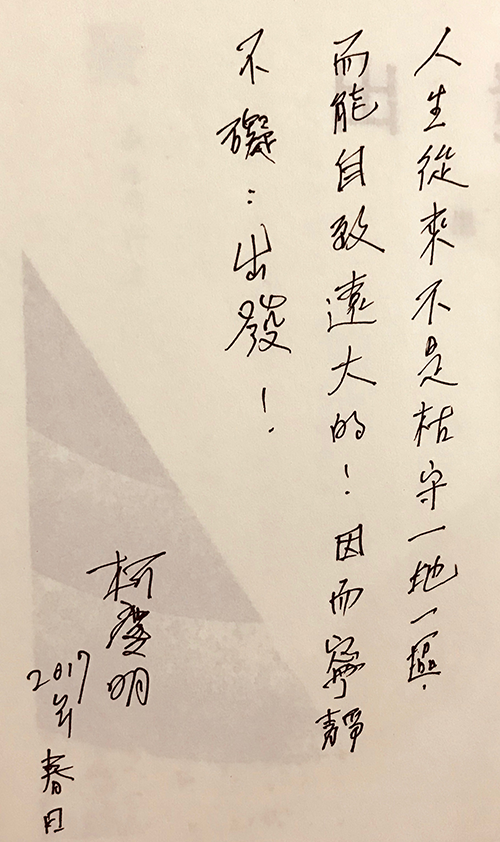 人生從來不是枯守一地一區，
而能自致遠大的！因而寧靜
不礙：出發！
柯慶明
2017年春日